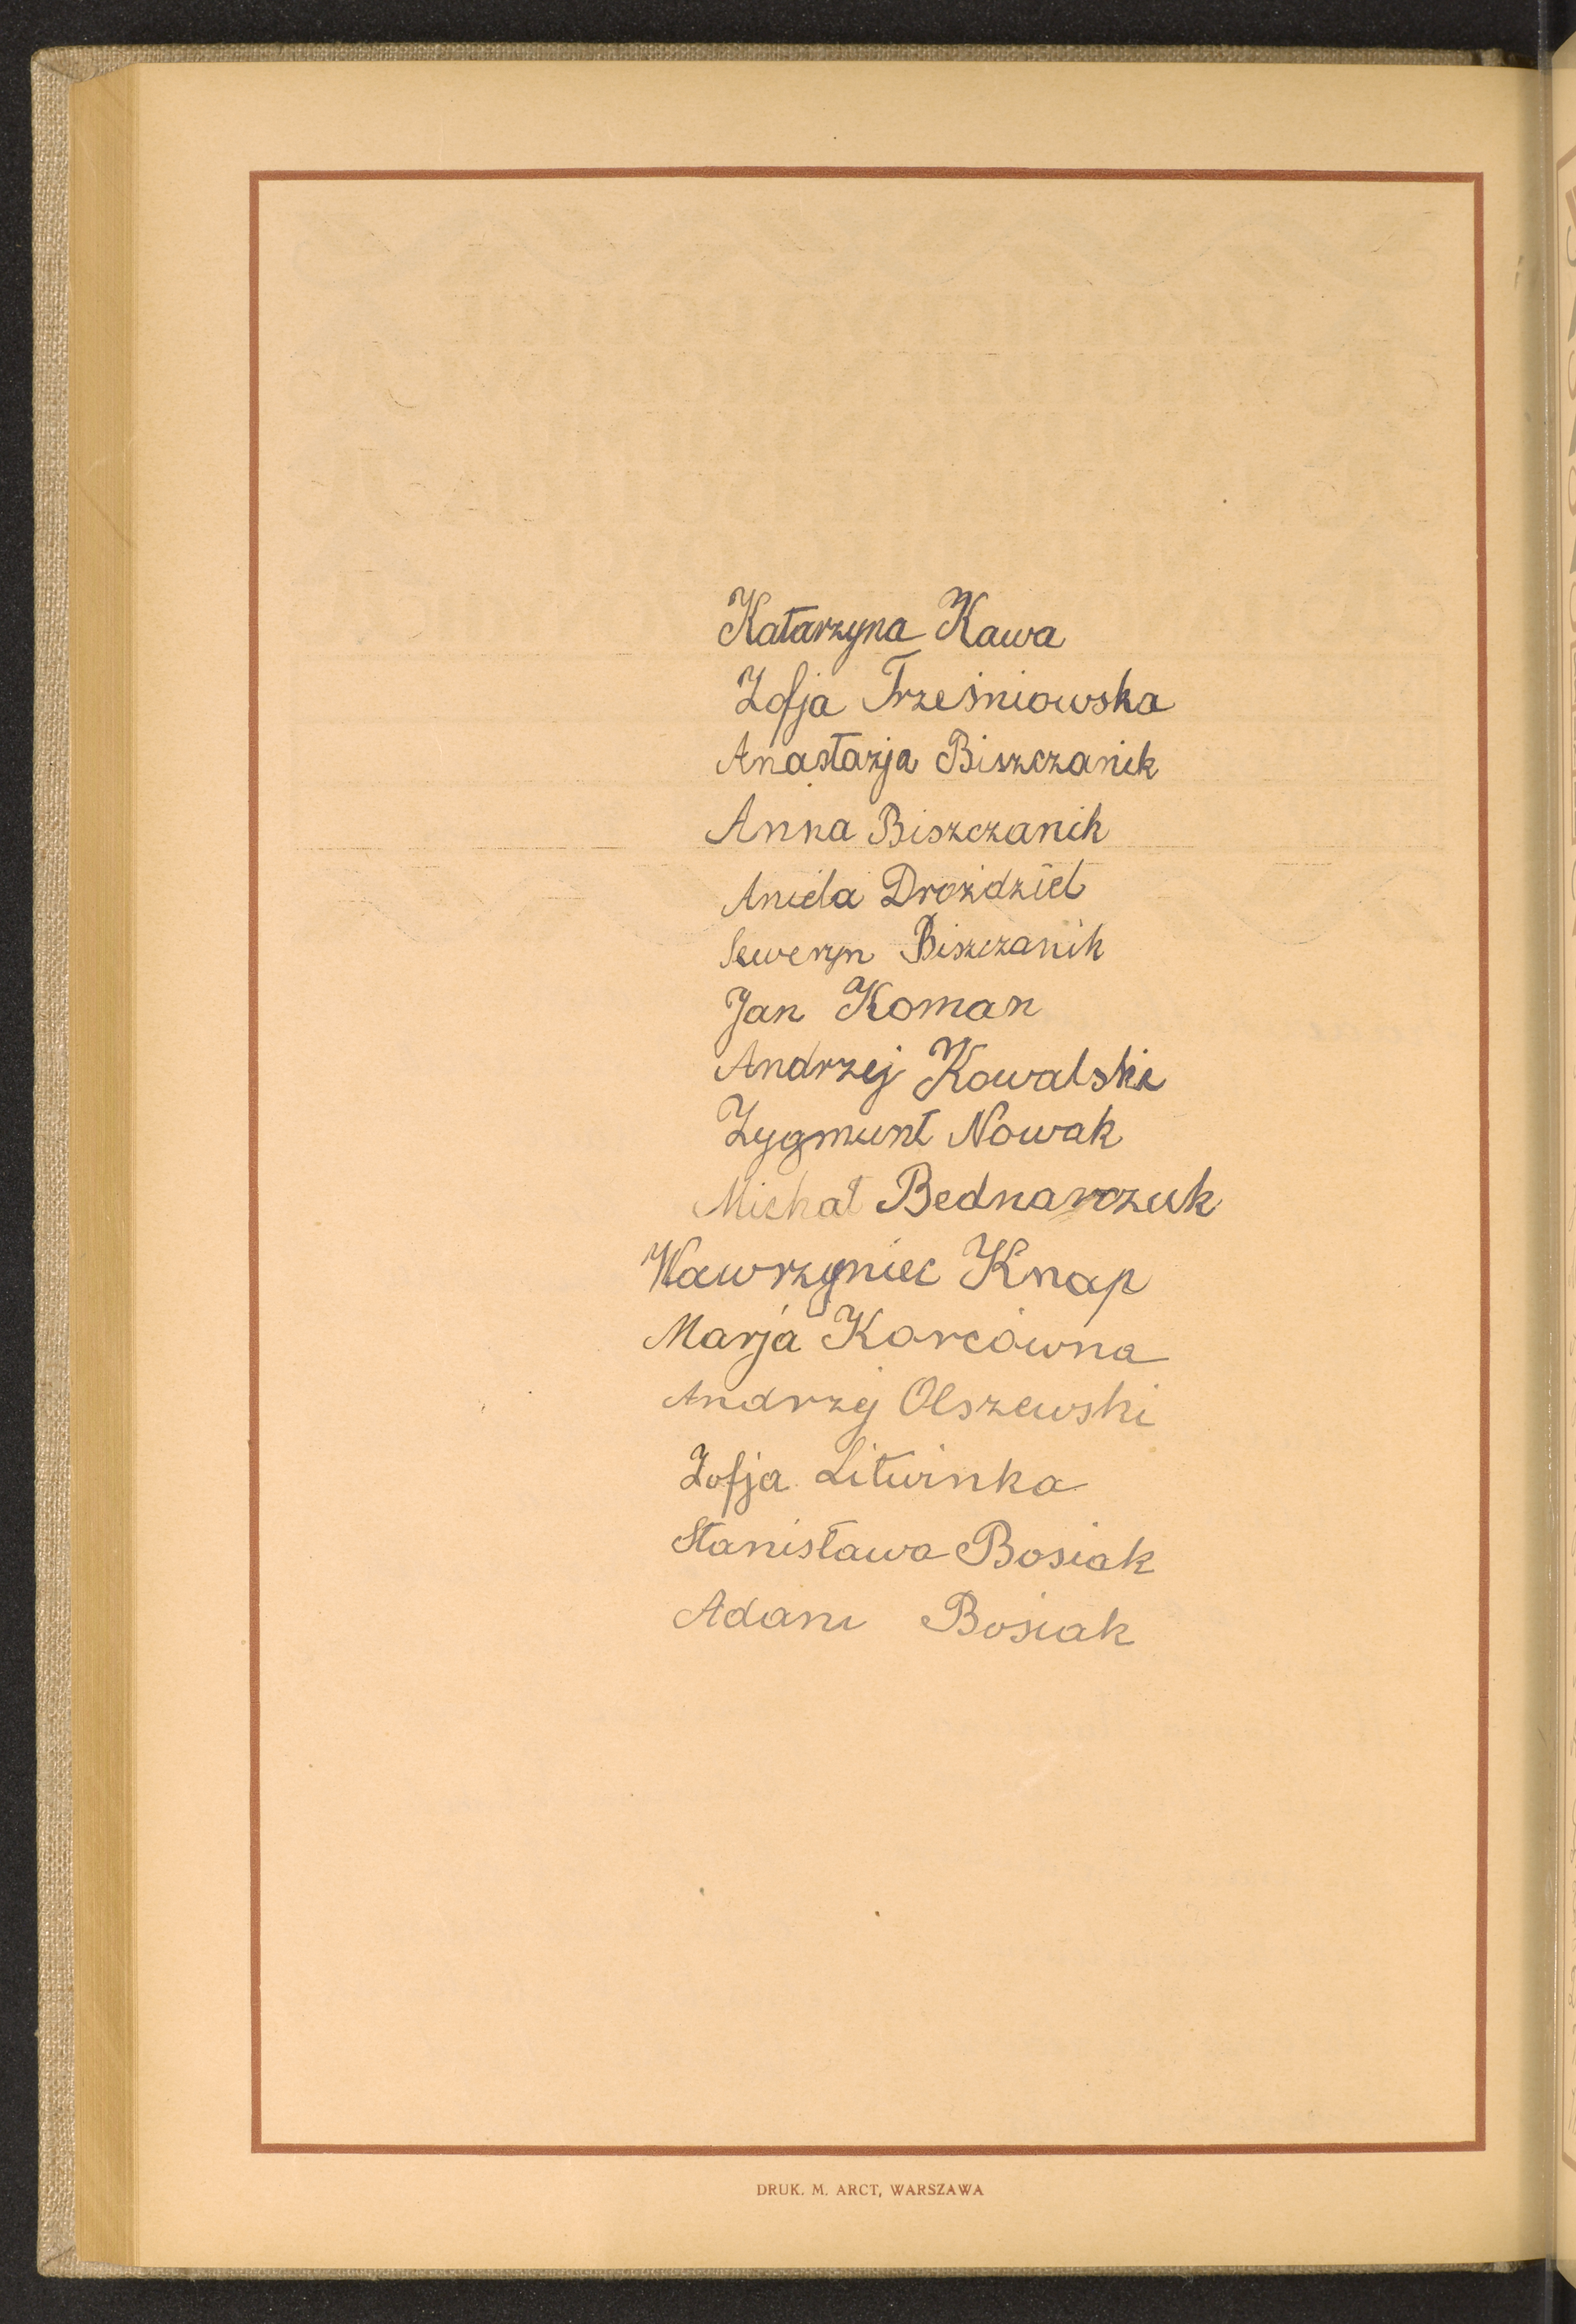 Katarzyna Kawa
Zofja Trześniowska
Anastazja Biszczanik
Anna Biszczanik
Aniela Droździel
Seweryn Biszczanik
Jan Koman
Andrzej Kowalski
Zygmunt Nowak
Michał Bednarczuk
Wawrzyniec Knap
Marja Korcówna
Andrzej Olszewski
Zofja Litwinka
Stanisława Bosiak
Adam Bosiak
DRUK. M. ARCT, WARSZAWA